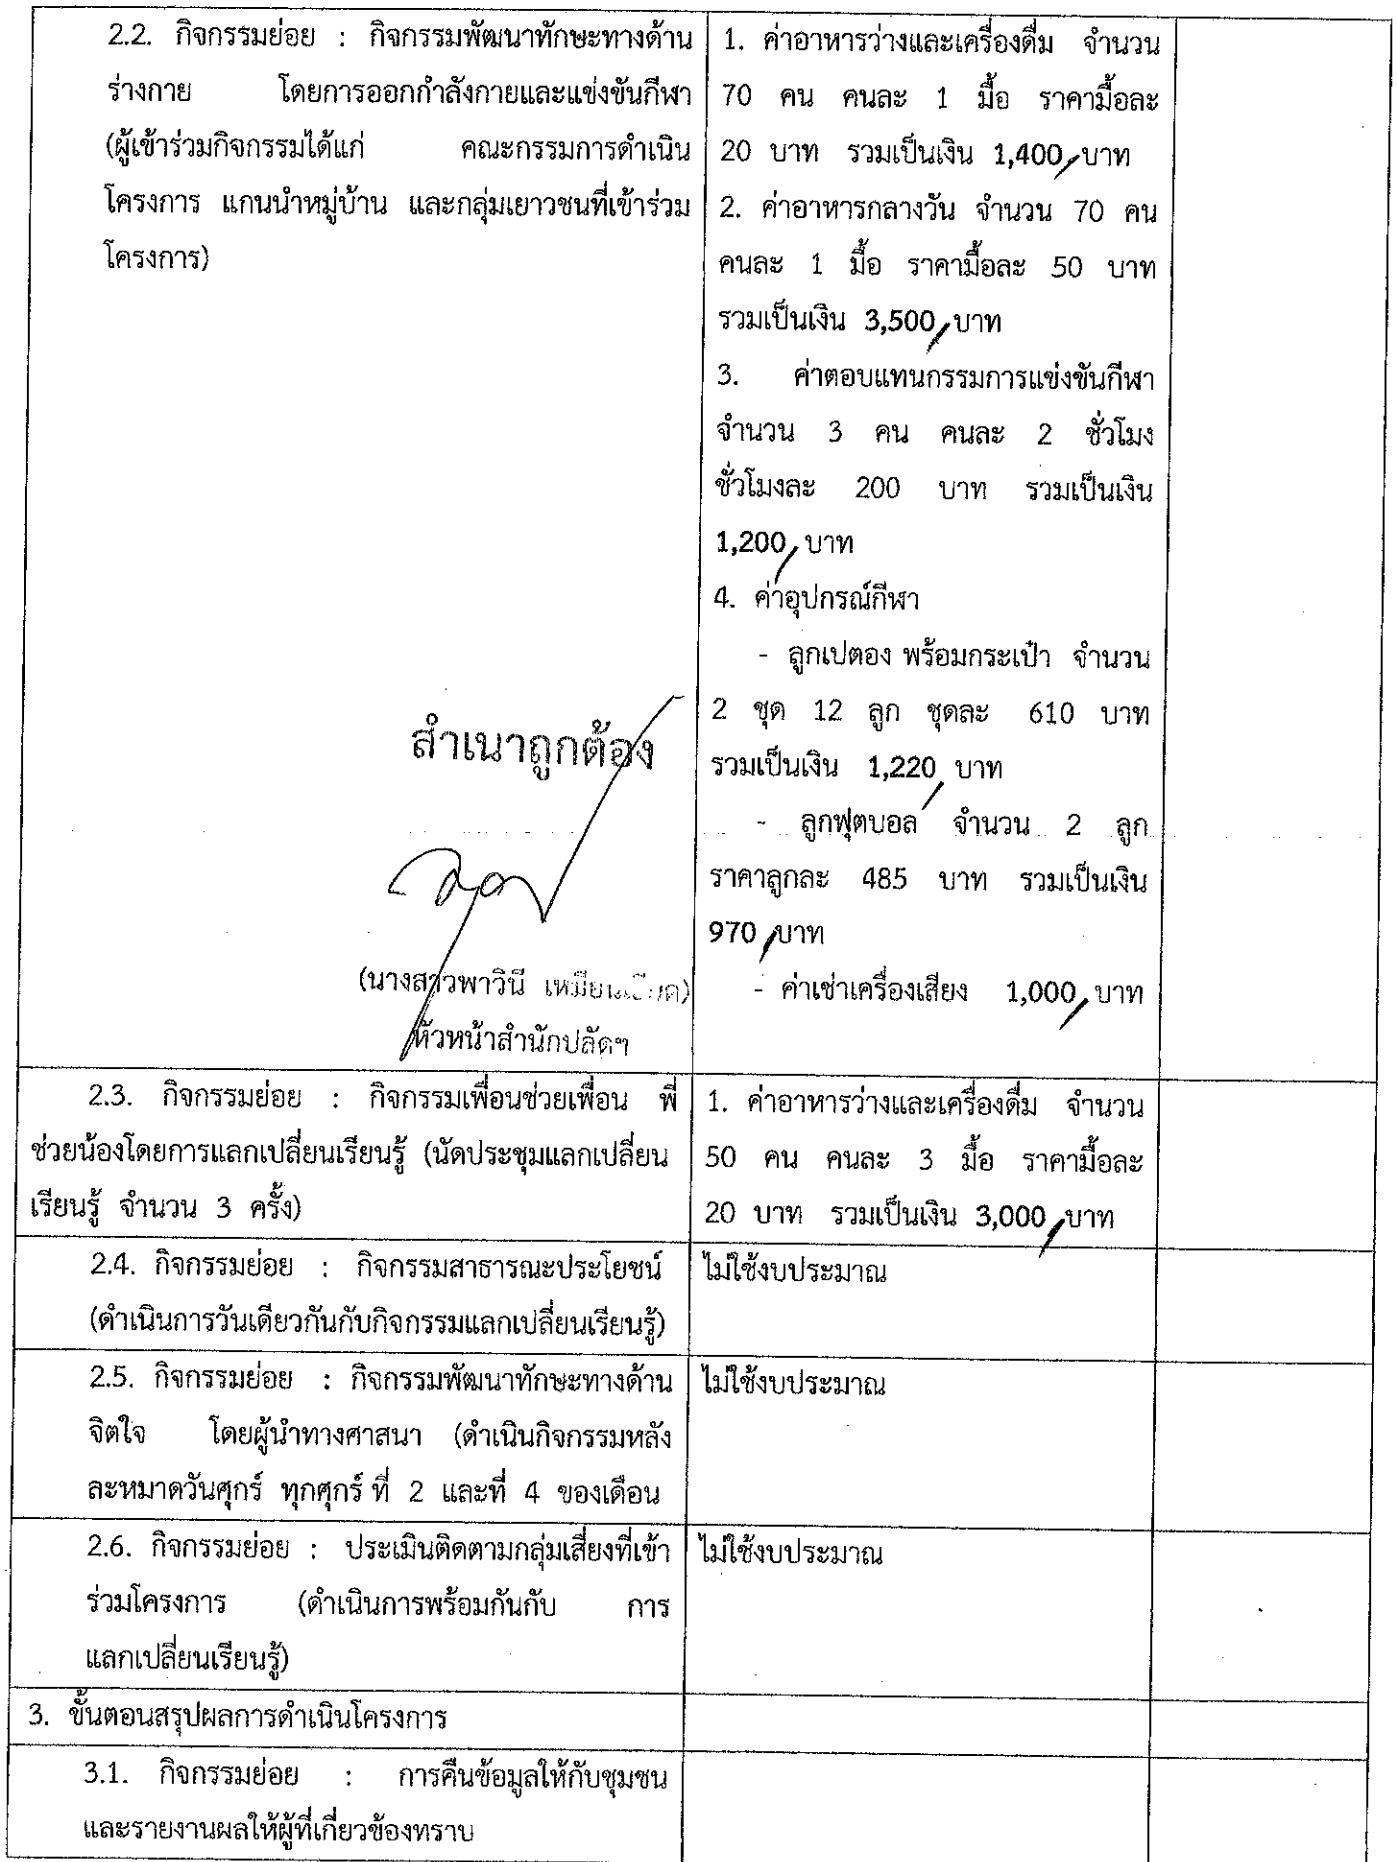 2.2. กิจกรรมย่อย : กิจกรรมพัฒนาทักษะทางด้าน
ร่างกาย โดยการออกกำลังกายและแข่งขันกีฬา
(ผู้เข้าร่วมกิจกรรมได้แก่ คณะกรรมการดำเนิน
โครงการ แกนนำหมู่บ้าน และกลุ่มเยาวชนที่เข้าร่วม
โครงการ)
1. ค่าอาหารว่างและเครื่องดื่ม จำนวน
70 คน คนละ 1 มื้อ ราคามื้อละ
20 บาท รวมเป็นเงิน 1,400 บาท
2. ค่าอาหารกลางวัน จำนวน 70 คน
คนละ 1 มื้อ ราคามื้อละ 50 บาท
รวมเป็นเงิน 3,500 บาท
3. ค่าตอบแทนกรรมการแข่งขันกีฬา
จำนวน 3 คน คนละ 2 ชั่วโมง
ชั่วโมงละ 200 บาท รวมเป็นเงิน
1,200 บาท
4. ค่าอุปกรณ์กีฬา
- ลูกเปตอง พร้อมกระเป๋า จำนวน
2 ชุด 12 ลูก ชุดละ 610 บาท
รวมเป็นเงิน 1,220 บาท
- ลูกฟุตบอล จำนวน 2 ลูก
ราคาลูกละ 485 บาท รวมเป็นเงิน
970 บาท
- ค่าเช่าเครื่องเสียง 1,000 บาท
สำเนาถูกต้อง
(นางสาวพาวินี
หัวหน้าสำนักปลัดฯ
2.3. กิจกรรมย่อย : กิจกรรมเพื่อนช่วยเพื่อน พี่
ช่วยน้องโดยการแลกเปลี่ยนเรียนรู้ (นัดประชุมแลกเปลี่ยน
เรียนรู้ จำนวน 3 ครั้ง)
1. ค่าอาหารว่างและเครื่องดื่ม จำนวน
50 คน คนละ 3 มื้อ ราคามื้อละ
20 บาท รวมเป็นเงิน 3,000 บาท
2.4. กิจกรรมย่อย : กิจกรรมสาธารณะประโยชน์
(ดำเนินการวันเดียวกันกับกิจกรรมแลกเปลี่ยนเรียนรู้)
ไม่ใช้งบประมาณ
2.5. กิจกรรมย่อย : กิจกรรมพัฒนาทักษะทางด้าน
จิตใจ โดยผู้นำทางศาสนา (ดำเนินกิจกรรมหลัง
ละหมาดวันศุกร์ ทุกศุกร์ ที่ 2 และที่ 4 ของเดือน
ไม่ใช้งบประมาณ
2.6. กิจกรรมย่อย : ประเมินติดตามกลุ่มเสี่ยงที่เข้า
ร่วมโครงการ (ดำเนินการพร้อมกันกับ การ
แลกเปลี่ยนเรียนรู้)
ไม่ใช้งบประมาณ
3. ขั้นตอนสรุปผลการดำเนินโครงการ
3.1. กิจกรรมย่อย : การคืนข้อมูลให้กับชุมชน
และรายงานผลให้ผู้ที่เกี่ยวข้องทราบ